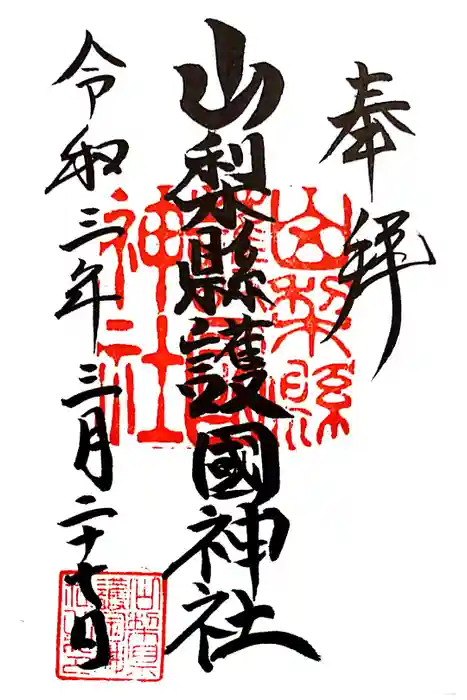 奉拝
山梨縣護國神社
山梨縣護國神社
令和三年三月二十七日